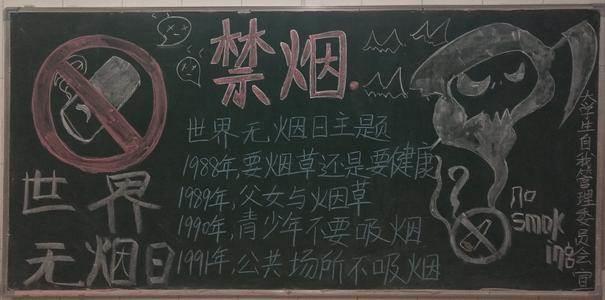 禁烟
世界无烟日主题
1988年,要烟草还是要健康
1989年,父女与烟草
1990年,青少年不要吸烟
1991年,公共场所不吸烟
世界
无烟日
no
smok
ing
大学生自我管理委员会 宣